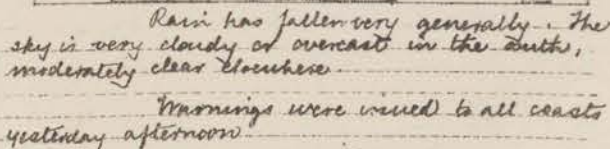 Rain has fallen very generally. The
sky is very cloudy or overcast in the south,
moderately clear elsewhere
Warnings were issued to all coasts
yesterday afternoon